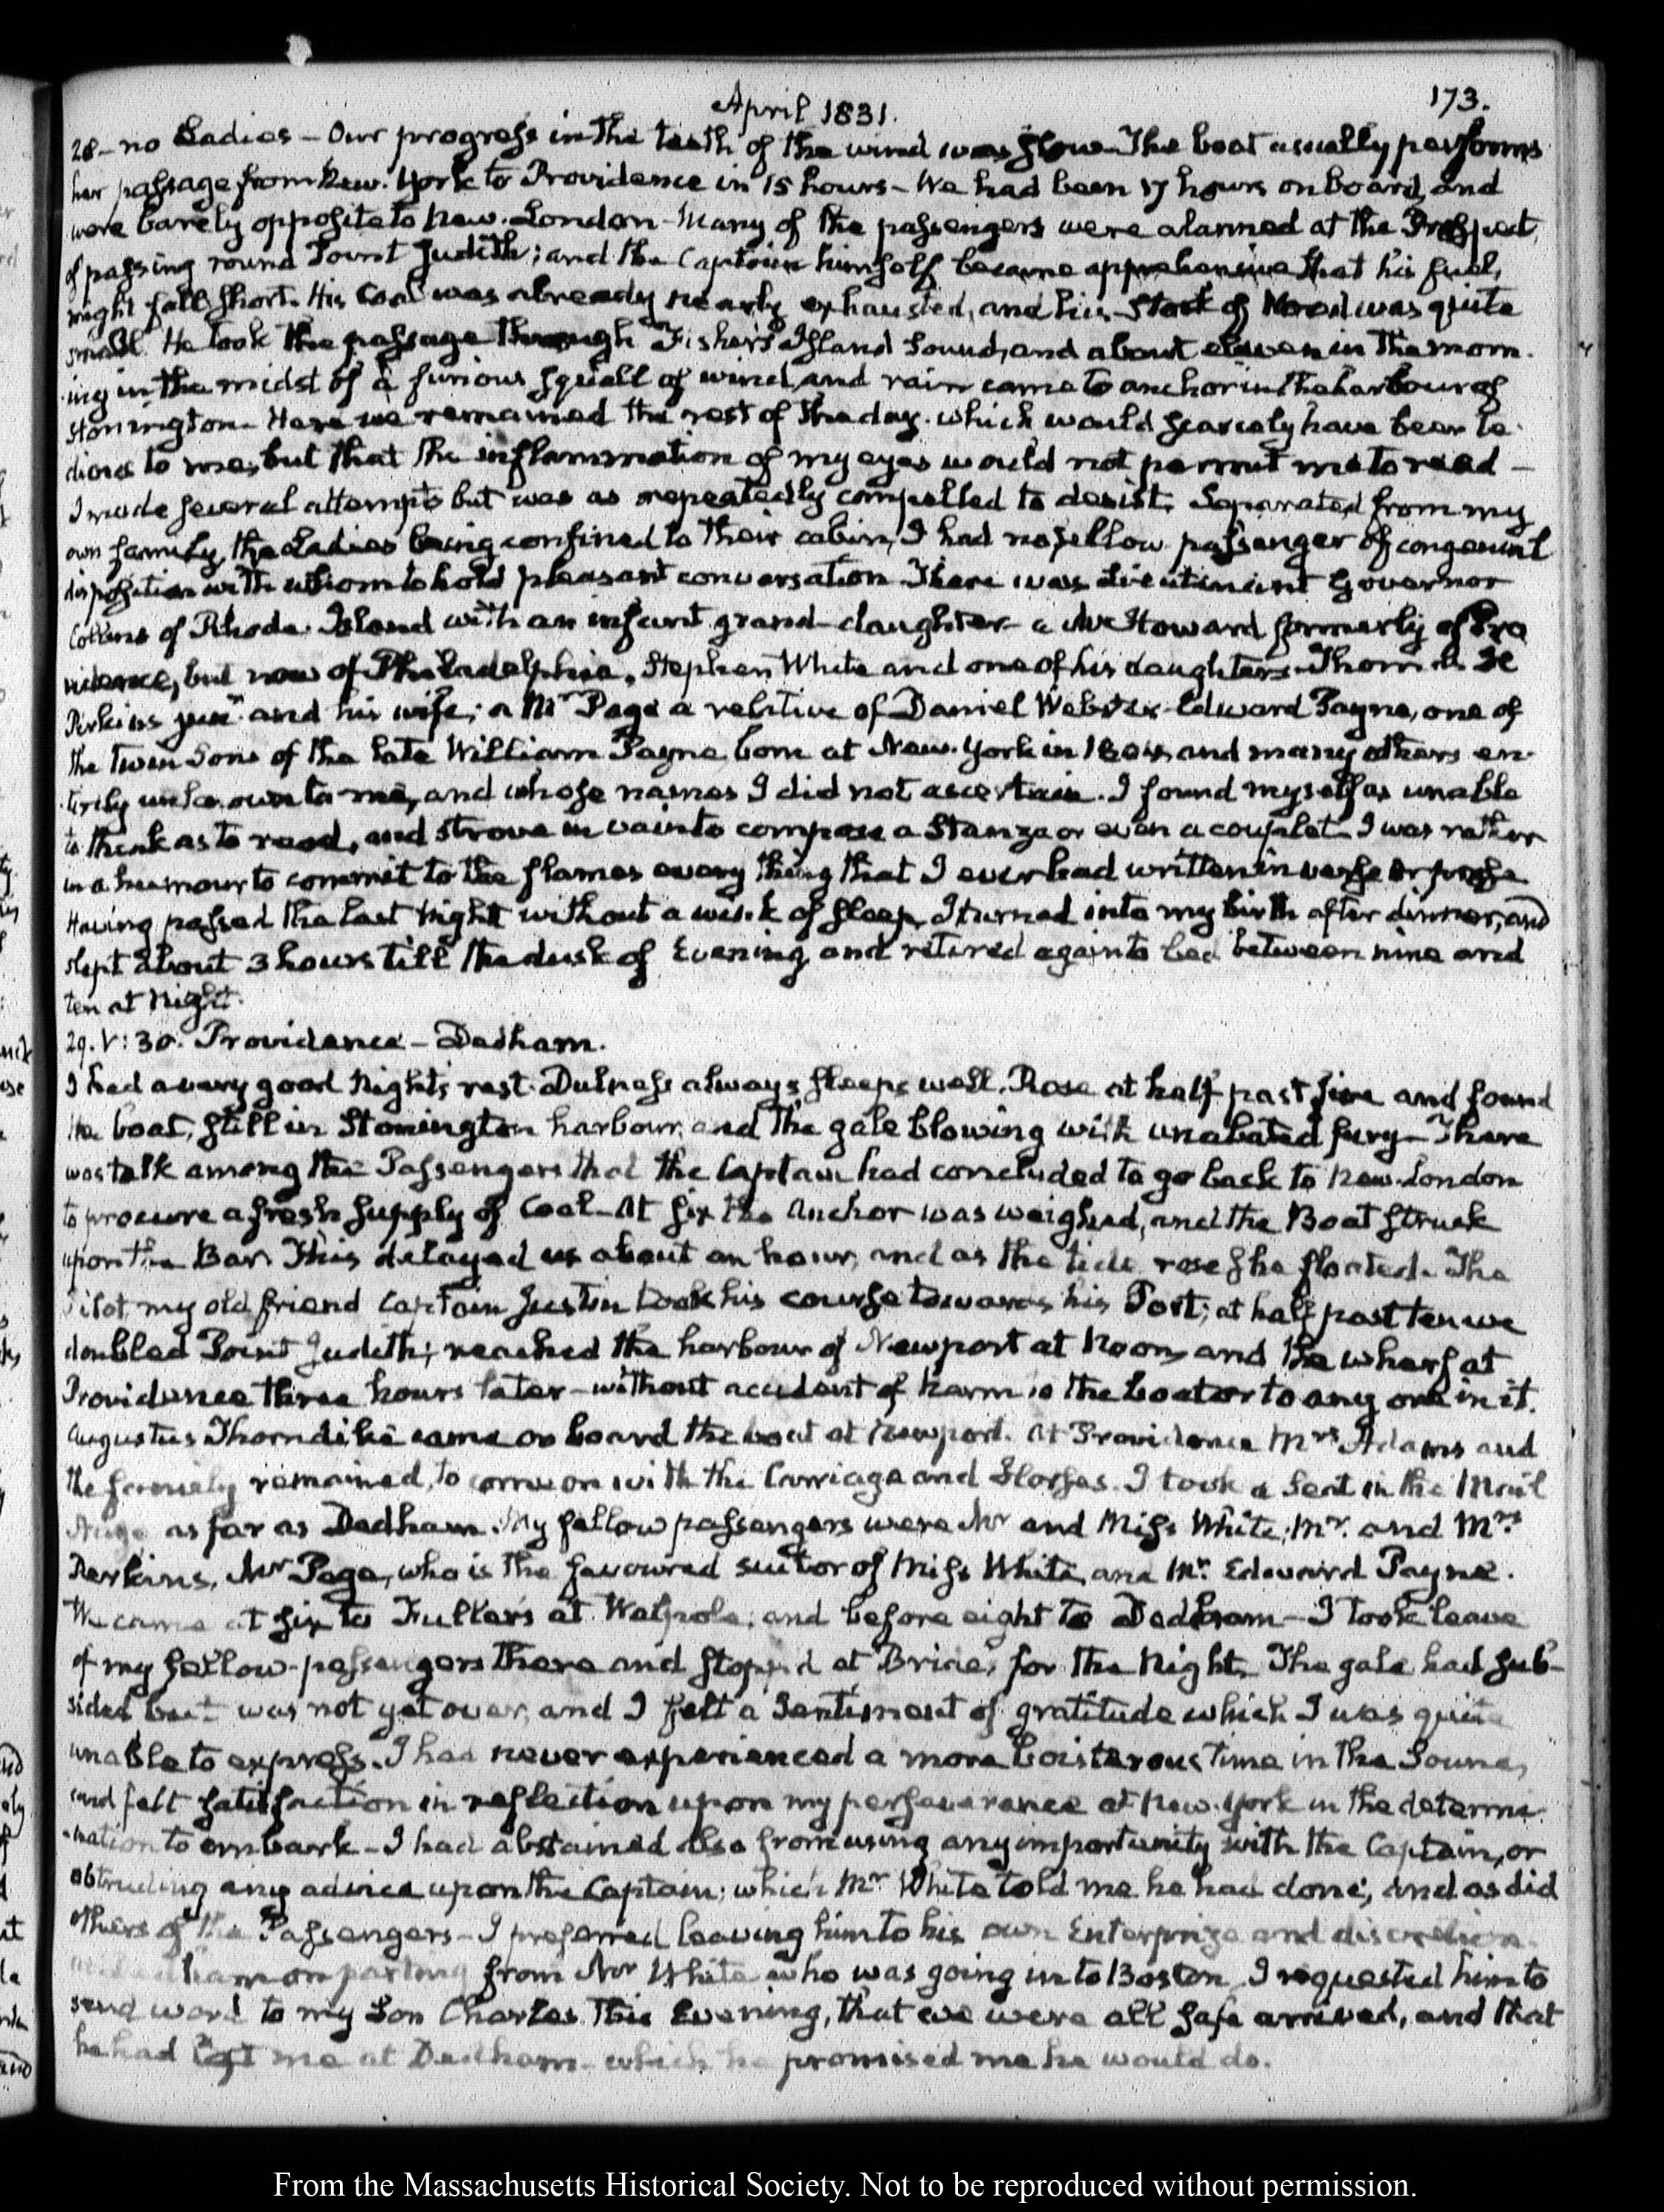 April 1831.
173.
28 - no Ladies - Our progress in the teeth of the wind was slow - The boat usually performs
her passage from New-York to Providence in 15 hours - We had been 17 hours on board, and
were barely opposite to New-London - Many of the passengers were alarmed at the Prospect
of passing round Point Judith; and the Captain himself became apprehensive that his fuel,
might fall short. His Coal was already nearly exhausted, and his Stock of Wood was quite
small. He took the passage through Fisher's Island Sound, and about eleven in the morn-
ing in the midst of a furious squall of wind, and rain came to anchor in the harbour of
Stonington. Here we remained the rest of the day. which would scarcely have been te-
dious to me, but that the inflammation of my eyes would not permit me to read -
I made several attempts but was as repeatedly compelled to desist. Separated from my
own family, the Ladies being confined to their cabin, I had no fellow passenger of congenial
disposition with whom to hold pleasant conversation. There was Lieutenant Governor
Collins of Rhode-Island with an infant grand-daughter - a Mr Howard formerly of Pro
vidence, but now of Philadelphia, Stephen White and one of his daughters - Thomas H
Perkins junr. and his wife; a Mr Page a relative of Daniel Webster - Edward Payne, one of
the twin Sons of the late William Payne born at New-York in 1804 and many others en-
tirely unknown to me, and whose names I did not ascertain. I found myself as unable
to think as to read, and strove in vain to compose a Stanza or even a couplet - I was rather
in a humour to commit to the flames every thing that I ever had written in verse or prose
Having passed the last Night without a wink of sleep, I turned into my birth after dinner, and
slept about 3 hours till the dusk of Evening, and retired again to bed between nine and
ten at Night.
29. V:30. Providence - Dedham.
I had a very good Night's rest. Dulness always sleeps well. Rose at half past five and found
the boat, still in Stonington harbour, and the gale blowing with unabated fury - There
was talk among the Passengers that the Captain had concluded to go back to New-London
to procure a fresh supply of Coal - At six the Anchor was weighed, and the Boat struck
upon the Bar. This delayed us about an hour, and as the tide rose she floated. The
Pilot, my old friend Captain Justin took his course towards his Port; at half past ten we
doubled Point Judith; reached the harbour of Newport at Noon, and the wharf at
Providence three hours later - without accident of harm to the boat or to any one in it.
Augustus Thorndike came on board the boat at Newport. At Providence Mrs Adams and
the family remained, to come on with the Carriage and Horses. I took a Seat in the Mail
Stage as far as Dedham. My fellow passengers were Mr and Miss White, Mr. and Mrs
Perkins, Mr Page, who is the favoured suitor of Miss White, and Mr. Edward Payne.
We came at six to Fuller's at Walpole; and before eight to Dedham - I took leave
of my fellow-passengers there and stopped at Bride's for the Night. The gale had sub-
sided but was not yet over, and I felt a Sentiment of gratitude which I was quite
unable to express. I had never experienced a more boisterous time in the Sound,
and felt satisfaction in reflection upon my perseverance at New-York in the determi-
-nation to embark - I had abstained also from using any importunity with the Captain, or
obtruding any advice upon the Captain; which Mr White told me he had done; and as did
others of the Passengers - I preferred leaving him to his own Enterprize and discretion.
At Dedham on parting from Mr White who was going in to Boston I requested him to
send word to my Son Charles this Evening, that we were all safe arrived, and that
he had left me at Dedham - which he promised me he would do.
From the Massachusetts Historical Society. Not to be reproduced without permission.